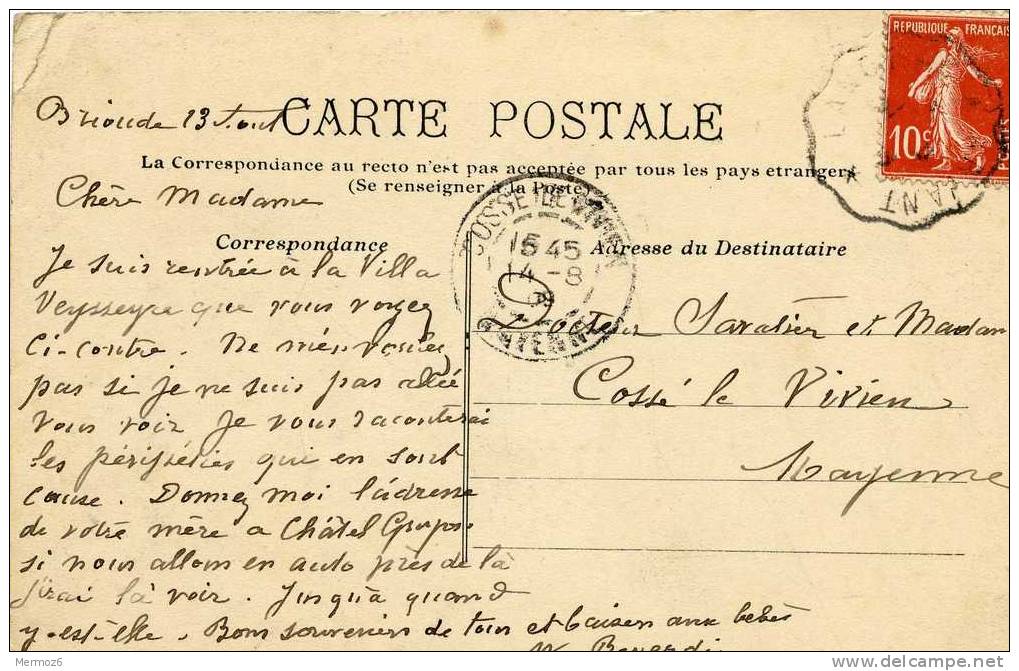 REPUBLIQUE FRANÇAIS
10c
POSTE
Brioude 13 Aout
CARTE POSTALE
La Correspondance au recto n'est pas acceptée par tous les pays etrangers
(Se renseigner à la Poste)
Chère Madame
COSSE-LE-VIVIEN
15 45
14-8
MAYENNE
Correspondance
Adresse du Destinataire
Je suis rentrée à la Villa
Veysseyre que vous voyez
Ci-contre. Ne m'en voulez
pas si je ne suis pas allée
vous voir je vous raconterai
les péripéties qui en sont
cause. Donnez moi l'adresse
de votre mère a Châtel
si nous allons en auto près de là
j'irai la voir. Jusqu'à quand
y-est-elle. Bons souvenirs de tous et baisers aux bébés
Docteur Savatier et Madam
Cossé le Vivien
Mayenne
Mermoz6